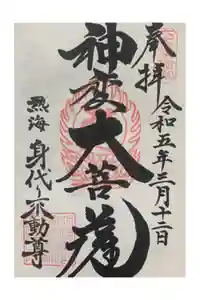 奉拝
令和五年三月十二日
神変大菩薩
熱海 身代り不動尊